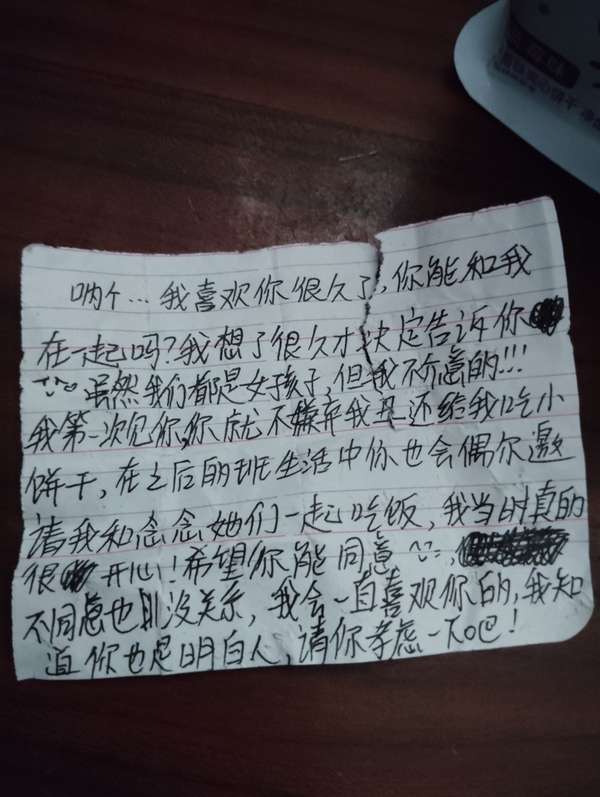 哟个…我喜欢你很久了,你能和我
在一起吗?我想了很久才决定告诉你
虽然我们都是女孩子,但我不介意的!!!
我第一次见你,你就不嫌弃我丑还给我吃小
饼干,在之后的班生活中你也会偶尔邀
请我和念念她们一起吃饭,我当时真的
很开心!希望你能同意
不同意也没关系,我会一直喜欢你的,我知
道你也是明白人,请你考虑一下吧!